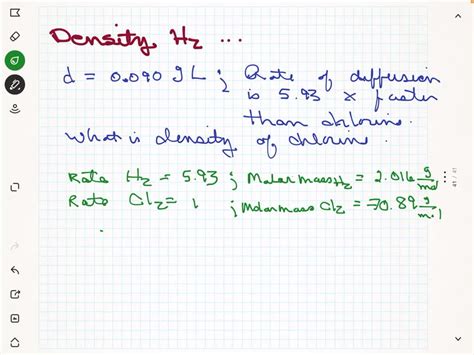 Density, H2 ...
d = 0.090 g L ; Rate of diffusion
is 5.93 x faster
than chlorine.
What is density of chlorine.
Rate H2 = 5.93 ; Molar mass H2 = 2.016 g/mol
Rate Cl2 = 1 ; Molar mass Cl2 = 70.89 g/mol